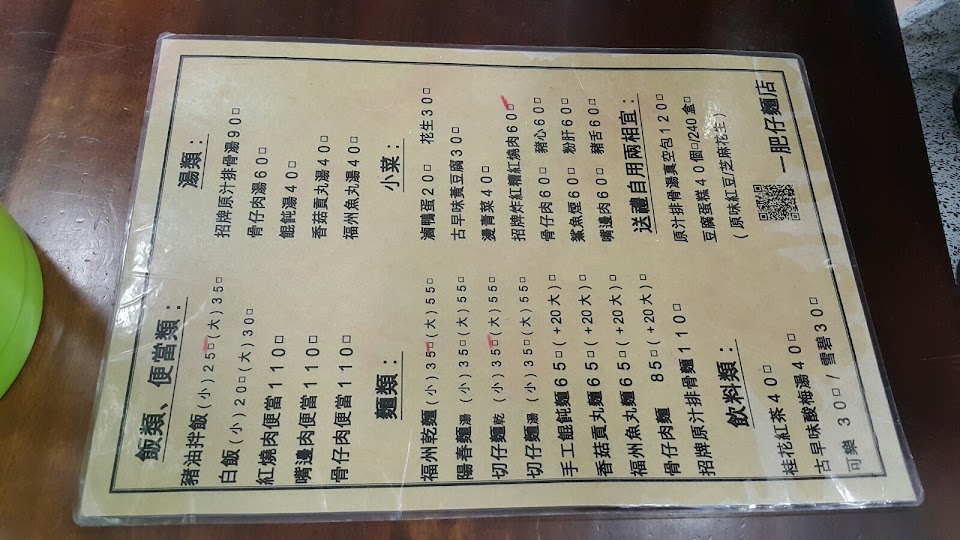 飯類、便當類：
豬油拌飯(小)25□(大)35□
白飯(小)20□(大)30□
紅燒肉便當110□
嘴邊肉便當110□
骨仔肉便當110□
麵類：
福州乾麵(小)35□(大)55□
陽春麵湯(小)35□(大)55□
切仔麵乾(小)35□(大)55□
切仔麵湯(小)35□(大)55□
手工餛飩麵65□(+20大)□
香菇貢丸麵65□(+20大)□
福州魚丸麵65□(+20大)□
骨仔肉麵 85□(+20大)□
招牌原汁排骨麵110□
飲料類：
桂花紅茶40□
古早味酸梅湯40□
可樂 30□/雪碧30□
湯類：
招牌原汁排骨湯90□
骨仔肉湯60□
餛飩湯40□
香菇貢丸湯40□
福州魚丸湯40□
小菜：
滷鴨蛋20□ 花生30□
古早味黃豆腐30□
燙青菜40□
招牌炸紅糟紅燒肉60□
骨仔肉60□ 豬心60□
鯊魚煙60□ 粉肝60□
嘴邊肉60□ 豬舌60□
送禮自用兩相宜：
原汁排骨湯真空包120□
豆腐蛋糕40個□/240盒□
(原味紅豆/芝麻花生)
一肥仔麵店